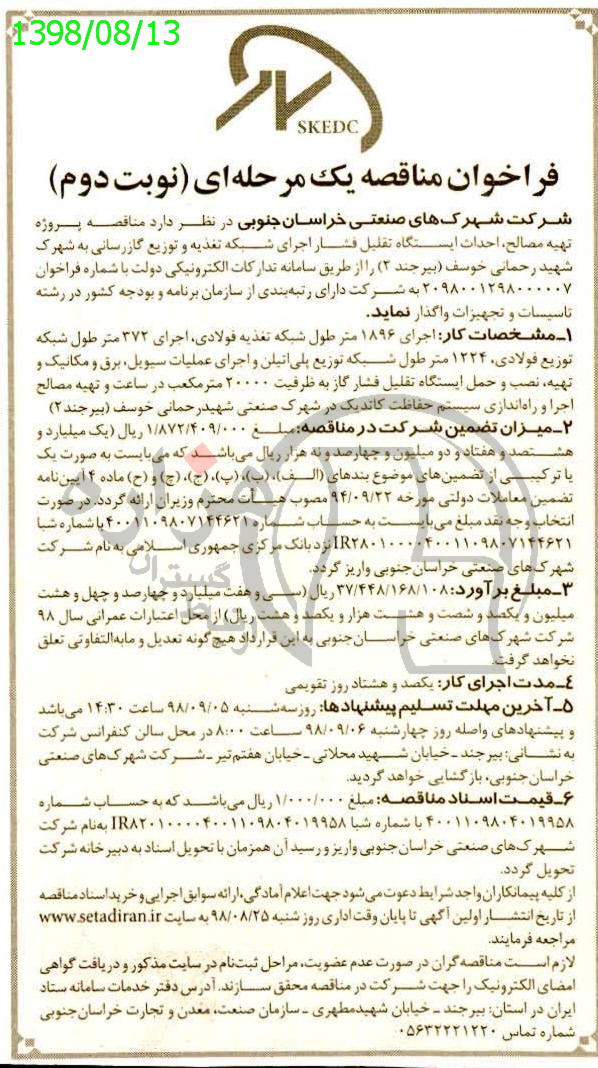 1398/08/13
SKEDC
فراخوان مناقصه یک مرحله‌ای (نوبت دوم)
شرکت شهرک‌های صنعتی خراسان‌جنوبی در نظر دارد مناقصه پروژه
تهیه مصالح، احداث ایستگاه تقلیل فشار اجرای شبکه تغذیه و توزیع گازرسانی به شهرک
شهید رحمانی خوسف (بیرجند ۲) را از طریق سامانه تدارکات الکترونیکی دولت با شماره فراخوان
۲۰۹۸۰۰۱۲۹۸۰۰۰۰۰۷ به شرکت دارای رتبه‌بندی از سازمان برنامه و بودجه کشور در رشته
تاسیسات و تجهیزات واگذار نماید.
۱ـ مشخصات کار: اجرای ۱۸۹۶ متر طول شبکه تغذیه فولادی، اجرای ۳۷۲ متر طول شبکه
توزیع فولادی، ۱۲۲۴ متر طول شبکه توزیع پلی‌اتیلن و اجرای عملیات سیویل، برق و مکانیک و
تهیه، نصب و حمل ایستگاه تقلیل فشار گاز به ظرفیت ۲۰۰۰۰ مترمکعب در ساعت و تهیه مصالح
اجرا و راه‌اندازی سیستم حفاظت کاتدیک در شهرک صنعتی شهیدرحمانی خوسف (بیرجند۲)
۲ـ میزان تضمین شرکت در مناقصه: مبلغ ۱/۸۷۲/۴۰۹/۰۰۰ ریال (یک میلیارد و
هشتصد و هفتاد و دو میلیون و چهارصد و نه هزار ریال می‌باشد که می‌بایست به صورت یک
یا ترکیبی از تضمین‌های موضوع بندهای (الف)، (ب)، (پ)، (ج)، (چ) و (ح) ماده ۴ آیین‌نامه
تضمین معاملات دولتی مورخه ۹۴/۰۹/۲۲ مصوب هیأت محترم وزیران ارائه گردد. در صورت
انتخاب وجه نقد مبلغ می‌بایست به حساب شماره ۴۰۰۱۱۰۹۸۰۷۱۴۴۶۲۱ با شماره شبا
IR۲۸۰۱۰۰۰۰۴۰۰۱۱۰۹۸۰۷۱۴۴۶۲۱ نزد بانک مرکزی جمهوری اسلامی به نام شرکت
شهرک‌های صنعتی خراسان‌جنوبی واریز گردد.
۳ـ مبلغ برآورد: ۳۷/۴۴۸/۱۶۸/۱۰۸ ریال (سی و هفت میلیارد و چهارصد و چهل و هشت
میلیون و یکصد و شصت و هشت هزار و یکصد و هشت ریال) از محل اعتبارات عمرانی سال ۹۸
شرکت شهرک‌های صنعتی خراسان‌جنوبی به این قرارداد هیچ گونه تعدیل و مابه‌التفاوتی تعلق
نخواهد گرفت.
۴ـ مدت اجرای کار: یکصد و هشتاد روز تقویمی
۵ـ آخرین مهلت تسلیم پیشنهادها: روز سه‌شنبه ۹۸/۰۹/۰۵ ساعت ۱۴:۳۰ می‌باشد
و پیشنهادهای واصله روز چهارشنبه ۹۸/۰۹/۰۶ ساعت ۸:۰۰ در محل سالن کنفرانس شرکت
به نشانی: بیرجند ـ خیابان شهید محلاتی ـ خیابان هفتم‌تیر ـ شرکت شهرک‌های صنعتی
خراسان‌جنوبی، بازگشایی خواهد گردید.
۶ـ قیمت اسناد مناقصه: مبلغ ۱/۰۰۰/۰۰۰ ریال می‌باشد که به حساب شماره
۴۰۰۱۱۰۹۸۰۴۰۱۹۹۵۸ با شماره شبا IR۸۲۰۱۰۰۰۰۴۰۰۱۱۰۹۸۰۴۰۱۹۹۵۸ به‌نام شرکت
شهرک‌های صنعتی خراسان‌جنوبی واریز و رسید آن همزمان با تحویل اسناد به دبیرخانه شرکت
تحویل گردد.
از کلیه پیمانکاران واجد شرایط دعوت می‌شود جهت اعلام آمادگی، ارائه سوابق اجرایی و خرید اسناد مناقصه
از تاریخ انتشار اولین آگهی تا پایان وقت اداری روز شنبه ۹۸/۰۸/۲۵ به سایت www.setadiran.ir
مراجعه فرمایند.
لازم است مناقصه‌گران در صورت عدم عضویت، مراحل ثبت‌نام در سایت مذکور و دریافت گواهی
امضای الکترونیک را جهت شرکت در مناقصه محقق سازند. آدرس دفتر خدمات سامانه ستاد
ایران در استان: بیرجند ـ خیابان شهیدمطهری ـ سازمان صنعت، معدن و تجارت خراسان‌جنوبی
شماره تماس ۰۵۶۳۲۲۲۱۲۲۰